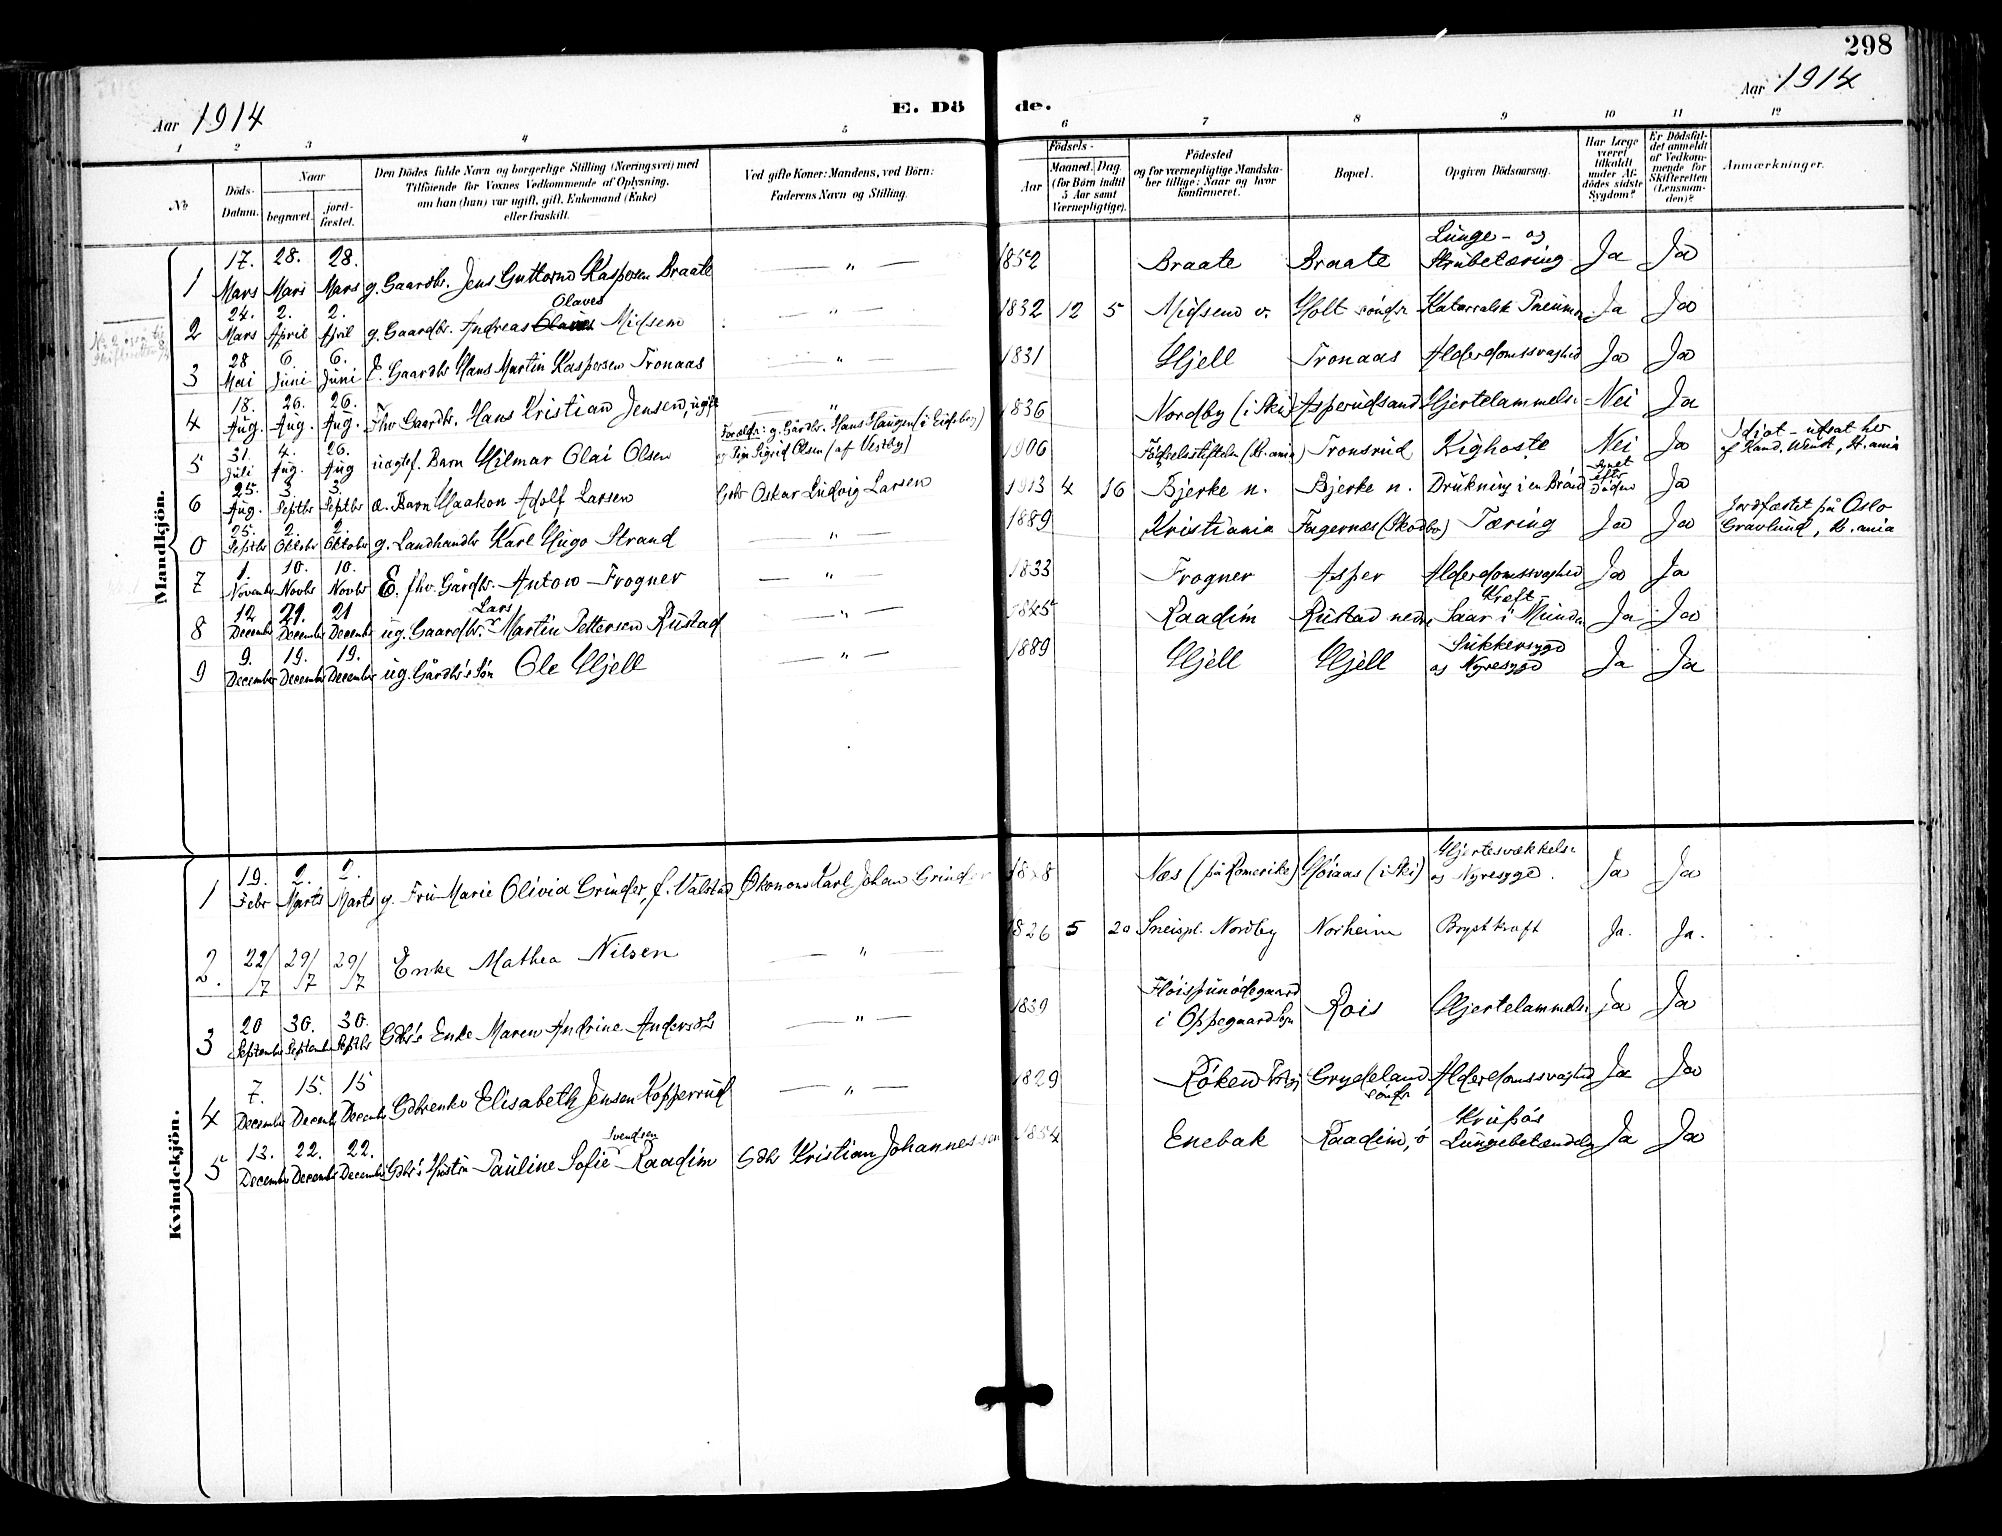 298
Aar 1914
E. Dö
de.
Aar 1914
1 2 3 4 5 6 7 8 9 10 11 12
No
Döds-Datum.
Naar
begravet.
jord-fæstet.
Den Dödes fulde Navn og borgerlige Stilling (Næringsvei) med
Tilföiende for Voxnes Vedkommende af Oplysning,
om han (hun) var ugift, gift, Enkemand (Enke)
eller fraskilt.
Ved gifte Koner: Mandens, ved Börn:
Faderens Navn og Stilling.
Födsels-
Aar
Maaned. Dag.
(for Börn indtil
5 Aar samt
Værnepligtige).
Födested
og for værnepligtige Mandska-
ber tillige: Naar og hvor
konfirmeret.
Bopæl.
Opgiven Dödsaarsag.
Har Læge
været
tilkaldt
under Af-
dödes sidste
Sygdom?
Er Dödsfal-
det anmeldt
af Vedkom-
mende for
Skifteretten
(Lensman-
den)?
Anmærkninger.
Mandkjön.
1 17. Mars 28. Mars 28. Mars g. Gaardbr. Jens Guttorm Kaspersen Braate — " — 1852 Braate Braate Lunge- og Strubetæring Ja Ja
2 24. Mars 2. April 2. April g. Gaardbr. Andreas Olaves Midsem — " — 1832 12 5 Midsem v. Holt søndr. Katarralsk Pneumon. Ja Ja
3 28 Mai 6. Juni 6. Juni E. Gaardbr Hans Martin Kaspersen Tronaas — " — 1831 Hjell Tronaas Alderdomssvaghed Ja Ja
4 18. Aug. 26. Aug. 26. Aug. Fhv Gaardbr. Hans Kristian Jensen, ugift — " — 1836 Nordby (i Ski) Asperudsand Hjertelammelse Nei Ja
5 31. Juli 4. Aug. 26. Aug uægtef. Barn Hilmar Olai Olsen Forældr: g. Gårdbr. Hans Haugen (i Eidsberg) og Pige Sigrid Olsen (af Vestby) 1906 Fødselsstiftelsen (Kr.ania) Tronsrud Kighoste Nei Ja Idiot - utsat her af Kand. Wendt, Kr.ania
6 25. Aug. 3. Septbr 3. Septbr æ. Barn Haakon Adolf Larsen Gbr Oskar Ludvig Larsen 1913 4 16 Bjerke n. Bjerke n. Drukning i en Brönd efter Döden Ja
0 25. Septbr 2. Oktobr 2. Oktobr g. Landhandlr Karl Hugo Strand — " — 1889 Kristiania Fagernæs (Skodbo) Tæring Ja Ja Jordfæstet på Oslo Gravlund, Kr.ania
7 1. Novembr 10. Novbr 10. Novbr E. fhv. Gårdbr. Anton Frogner — " — 1833 Frogner Asper Alderdomssvaghed Ja Ja
8 12 December 21. December 21 December ug. Gaardbr. Lars Martin Pettersen Rustad — " — 1845 Raadim Rustad nedre Kræft- Saar i Munden Ja Ja
9 9. December 19. December 19. December ug. Gårdbr's Søn Ole Hjell — " — 1889 Hjell Hjell Sukkersyge og Nyresyge Ja Ja
Kvindekjön.
1 19. Febr 2. Marts 2. Marts g. Fru Marie Olivia Grinder, f. Valstad Økonom Karl Johan Grinder Næs (på Romerike) Høiaas (i Ski) Hjertesvækkelse og Nyresyge. Ja Ja
2. 22/7 29/7 29/7 Enke Mathea Nilsen — " — 1826 5 20 Sneispl. Nordby Norheim Brystkræft Ja. Ja.
3 20 September 30. September 30. Septbr Gdbr's Enke Maren Andrine Andersdtr — " — 1839 Fløispunødegaard i Oppegaard Sogn Rois Hjertelammelse ja Ja
4 7. December 15. Decembr 15 December Gdbrenke Elisabeth Jensen Kopperrud — " — 1829 Røken Grydeland søndr Alderdomssvaghed Ja Ja
5 13. December 22. December 22. December Gdbr's Hustru Pauline Sofie Svendsen Raadim Gdbr Kristian Johannessen 1854 Enebak Raadim, ø Krupøs Lungebetændelse Ja Ja